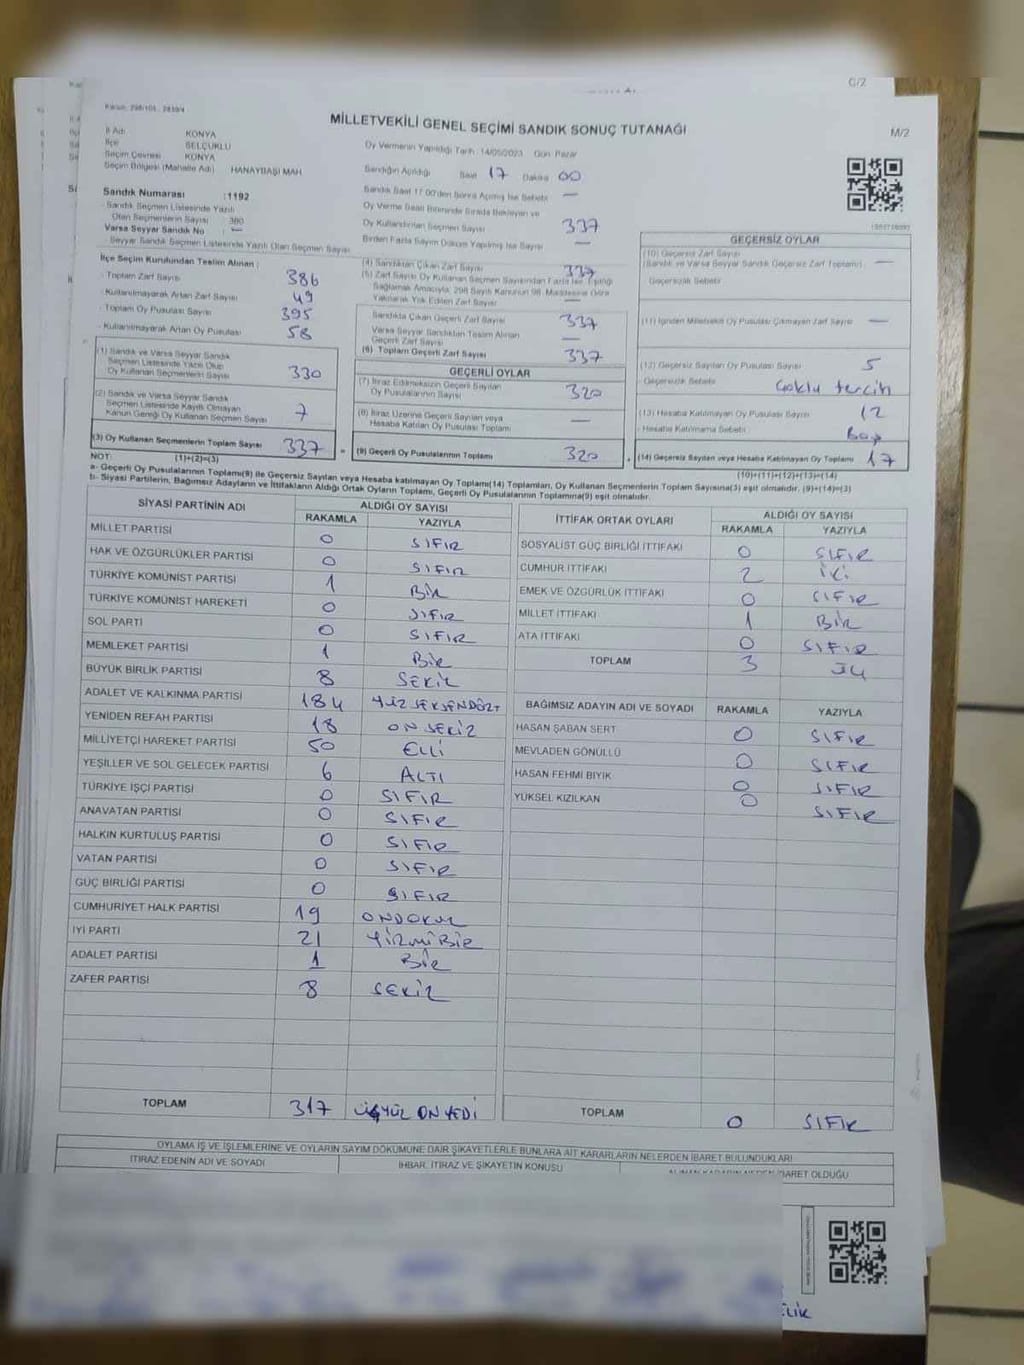 G/2
Kanun: 298/105 - 2839/4
MİLLETVEKİLİ GENEL SEÇİMİ SANDIK SONUÇ TUTANAĞI
M/2
İl Adı KONYA
İlçe SELÇUKLU
Seçim Çevresi KONYA
Seçim Bölgesi (Mahalle Adı) HANAYBAŞI MAH.
Oy Vermenin Yapıldığı Tarih : 14/05/2023 Gün: Pazar
Sandığın Açıldığı Saat 17 Dakika 00
Sandık Saat 17:00'den Sonra Açılmış İse Sebebi —
Oy Verme Saati Bitiminde Sırada Bekleyen ve
Oy Kullandırılan Seçmen Sayısı 337
Birden Fazla Sayım Döküm Yapılmış İse Sayısı —
Sandık Numarası :1192
Sandık Seçmen Listesinde Yazılı
Olan Seçmenlerin Sayısı 380
Varsa Seyyar Sandık No —
Seyyar Sandık Seçmen Listesinde Yazılı Olan Seçmen Sayısı
İlçe Seçim Kurulundan Teslim Alınan :
- Toplam Zarf Sayısı 386
- Kullanılmayarak Artan Zarf Sayısı 49
- Toplam Oy Pusulası Sayısı 395
- Kullanılmayarak Artan Oy Pusulası 58
(1) Sandık ve Varsa Seyyar Sandık
Seçmen Listesinde Yazılı Olup
Oy Kullanan Seçmenlerin Sayısı 330
(2) Sandık ve Varsa Seyyar Sandık
Seçmen Listesinde Kayıtlı Olmayan
Kanun Gereği Oy Kullanan Seçmen Sayısı 7
(3) Oy Kullanan Seçmenlerin Toplam Sayısı 337
(1)+(2)=(3)
(4) Sandıktan Çıkan Zarf Sayısı 337
(5) Zarf Sayısı Oy Kullanan Seçmen Sayısından Fazla İse, Eşitliği
Sağlamak Amacıyla, 298 Sayılı Kanunun 98. Maddesine Göre
Yakılarak Yok Edilen Zarf Sayısı —
Sandıkta Çıkan Geçerli Zarf Sayısı 337
Varsa Seyyar Sandıktan Teslim Alınan
Geçerli Zarf Sayısı —
(6) Toplam Geçerli Zarf Sayısı 337
GEÇERLİ OYLAR
(7) İtiraz Edilmeksizin Geçerli Sayılan
Oy Pusulalarının Sayısı 320
(8) İtiraz Üzerine Geçerli Sayılan veya
Hesaba Katılan Oy Pusulası Toplamı —
(9) Geçerli Oy Pusulalarının Toplamı 320
GEÇERSİZ OYLAR
(10) Geçersiz Zarf Sayısı
(Sandık ve Varsa Seyyar Sandık Geçersiz Zarf Toplamı) —
Geçersizlik Sebebi
(11) İçinden Milletvekili Oy Pusulası Çıkmayan Zarf Sayısı —
(12) Geçersiz Sayılan Oy Pusulası Sayısı 5
- Geçersizlik Sebebi Çoklu tercih
(13) Hesaba Katılmayan Oy Pusulası Sayısı 12
- Hesaba Katılmama Sebebi Boş
(14) Geçersiz Sayılan veya Hesaba Katılmayan Oy Toplamı 17
(10)+(11)+(12)+(13)=(14)
NOT:
a- Geçerli Oy Pusulalarının Toplamı(9) ile Geçersiz Sayılan veya Hesaba katılmayan Oy Toplamı(14) Toplamları, Oy Kullanan Seçmenlerin Toplam Sayısına(3) eşit olmalıdır. (9)+(14)=(3)
b- Siyasi Partilerin, Bağımsız Adayların ve İttifakların Aldığı Ortak Oyların Toplamı, Geçerli Oy Pusulalarının Toplamına(9) eşit olmalıdır.
SİYASİ PARTİNİN ADI ALDIĞI OY SAYISI
RAKAMLA YAZIYLA
MİLLET PARTİSİ 0 SIFIR
HAK VE ÖZGÜRLÜKLER PARTİSİ 0 SIFIR
TÜRKİYE KOMÜNİST PARTİSİ 1 BİR
TÜRKİYE KOMÜNİST HAREKETİ 0 SIFIR
SOL PARTİ 0 SIFIR
MEMLEKET PARTİSİ 1 BİR
BÜYÜK BİRLİK PARTİSİ 8 SEKİZ
ADALET VE KALKINMA PARTİSİ 184 YÜZ SEKSENDÖRT
YENİDEN REFAH PARTİSİ 18 ON SEKİZ
MİLLİYETÇİ HAREKET PARTİSİ 50 ELLİ
YEŞİLLER VE SOL GELECEK PARTİSİ 6 ALTI
TÜRKİYE İŞÇİ PARTİSİ 0 SIFIR
ANAVATAN PARTİSİ 0 SIFIR
HALKIN KURTULUŞ PARTİSİ 0 SIFIR
VATAN PARTİSİ 0 SIFIR
GÜÇ BİRLİĞİ PARTİSİ 0 SIFIR
CUMHURİYET HALK PARTİSİ 19 ONDOKUZ
İYİ PARTİ 21 YİRMİBİR
ADALET PARTİSİ 1 BİR
ZAFER PARTİSİ 8 SEKİZ
TOPLAM 317 ÜÇYÜZ ON YEDİ
İTTİFAK ORTAK OYLARI ALDIĞI OY SAYISI
RAKAMLA YAZIYLA
SOSYALİST GÜÇ BİRLİĞİ İTTİFAKI 0 SIFIR
CUMHUR İTTİFAKI 2 İKİ
EMEK VE ÖZGÜRLÜK İTTİFAKI 0 SIFIR
MİLLET İTTİFAKI 1 BİR
ATA İTTİFAKI 0 SIFIR
TOPLAM 3 ÜÇ
BAĞIMSIZ ADAYIN ADI VE SOYADI RAKAMLA YAZIYLA
HASAN ŞABAN SERT 0 SIFIR
MEVLADEN GÖNÜLLÜ 0 SIFIR
HASAN FEHMİ BIYIK 0 SIFIR
YÜKSEL KIZILKAN 0 SIFIR
TOPLAM 0 SIFIR
OYLAMA İŞ VE İŞLEMLERİNE VE OYLARIN SAYIM DÖKÜMÜNE DAİR ŞİKAYETLERLE BUNLARA AİT KARARLARIN NELERDEN İBARET BULUNDUKLARI
İTİRAZ EDENİN ADI VE SOYADI İHBAR, İTİRAZ VE ŞİKAYETİN KONUSU ALINAN KARARIN NEDEN İBARET OLDUĞU
ELİK